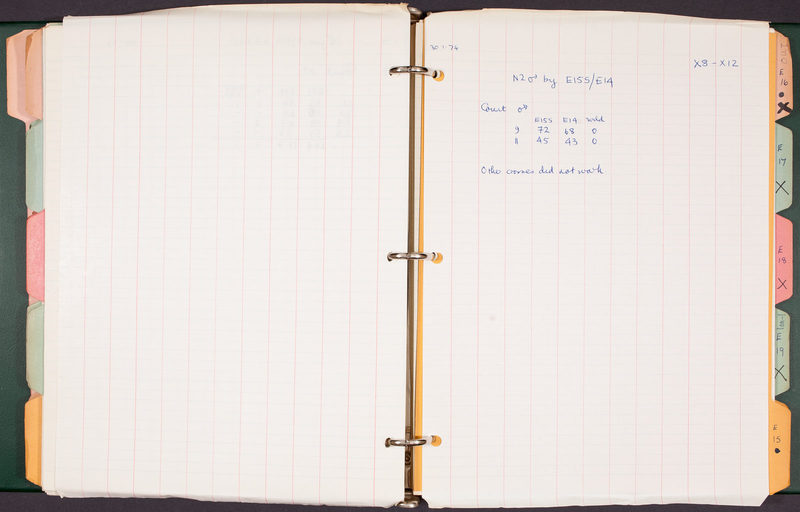 30.1.74
X8 – X12
N2♂ by E155/E14
Count ♂♂
E155 E14 wild
9 72 68 0
11 45 43 0
Other crosses did not work
E
16
X
E
17
X
E
18
X
E
19
X
E
15